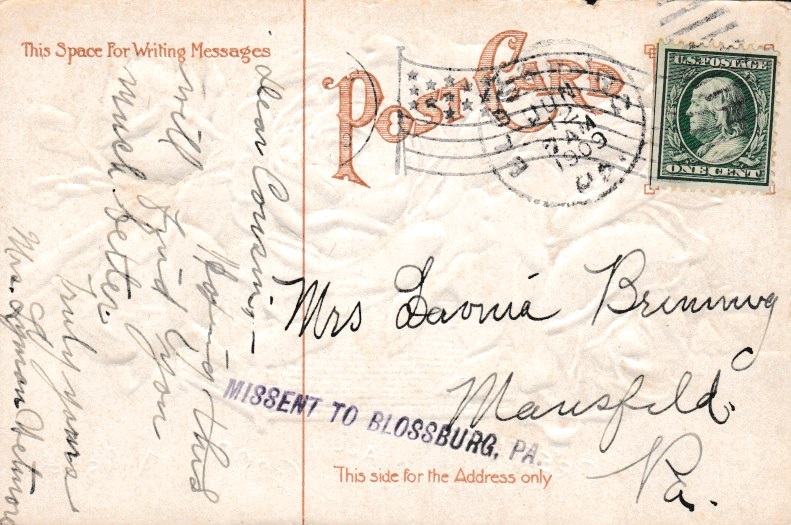 This Space For Writing Messages
POST CARD
U.S. POSTAGE
ONE CENT
JUN
AM
1909
PA.
Dear Cousin,—
Hoping this
will find you
much better.
Truly yours
Mrs. Lyman Wetmore
Mrs Lavnia Brenning
Mansfield,
Pa.
MISSENT TO BLOSSBURG, PA.
This side for the Address only